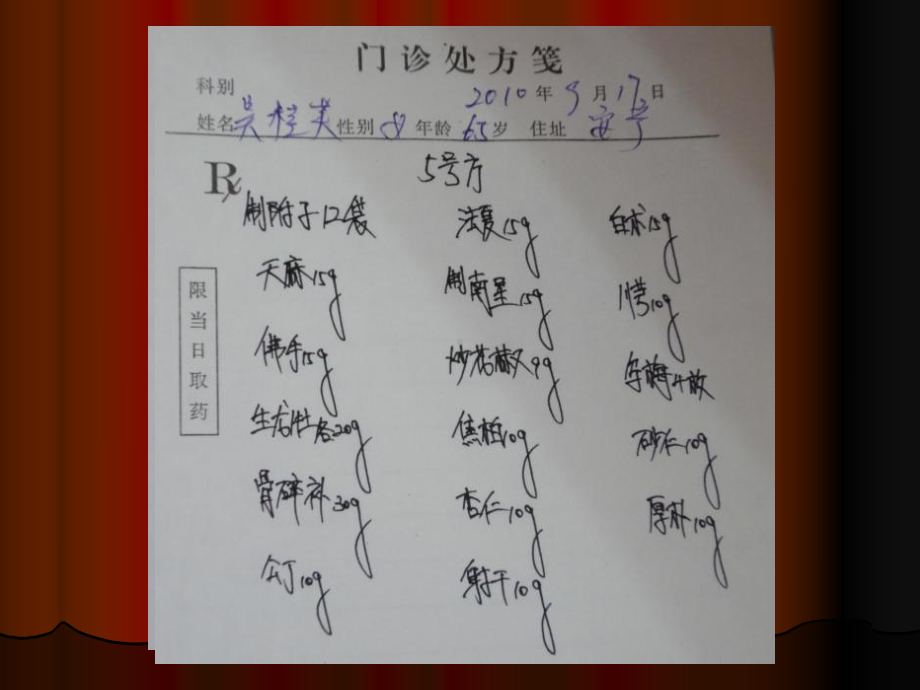 门诊处方笺
科别 2010年9月17日
姓名 吴桂英 性别 年龄 65岁 住址 安宁
R 5号方
制附子12袋 法夏15g 白术15g
天麻15g 制南星15g 川芎10g
佛手15g 炒花椒9g 乌梅4枚
生龙牡各20g 焦柏10g 砂仁10g
骨碎补30g 杏仁10g 厚朴10g
公丁10g 射干10g
限当日取药